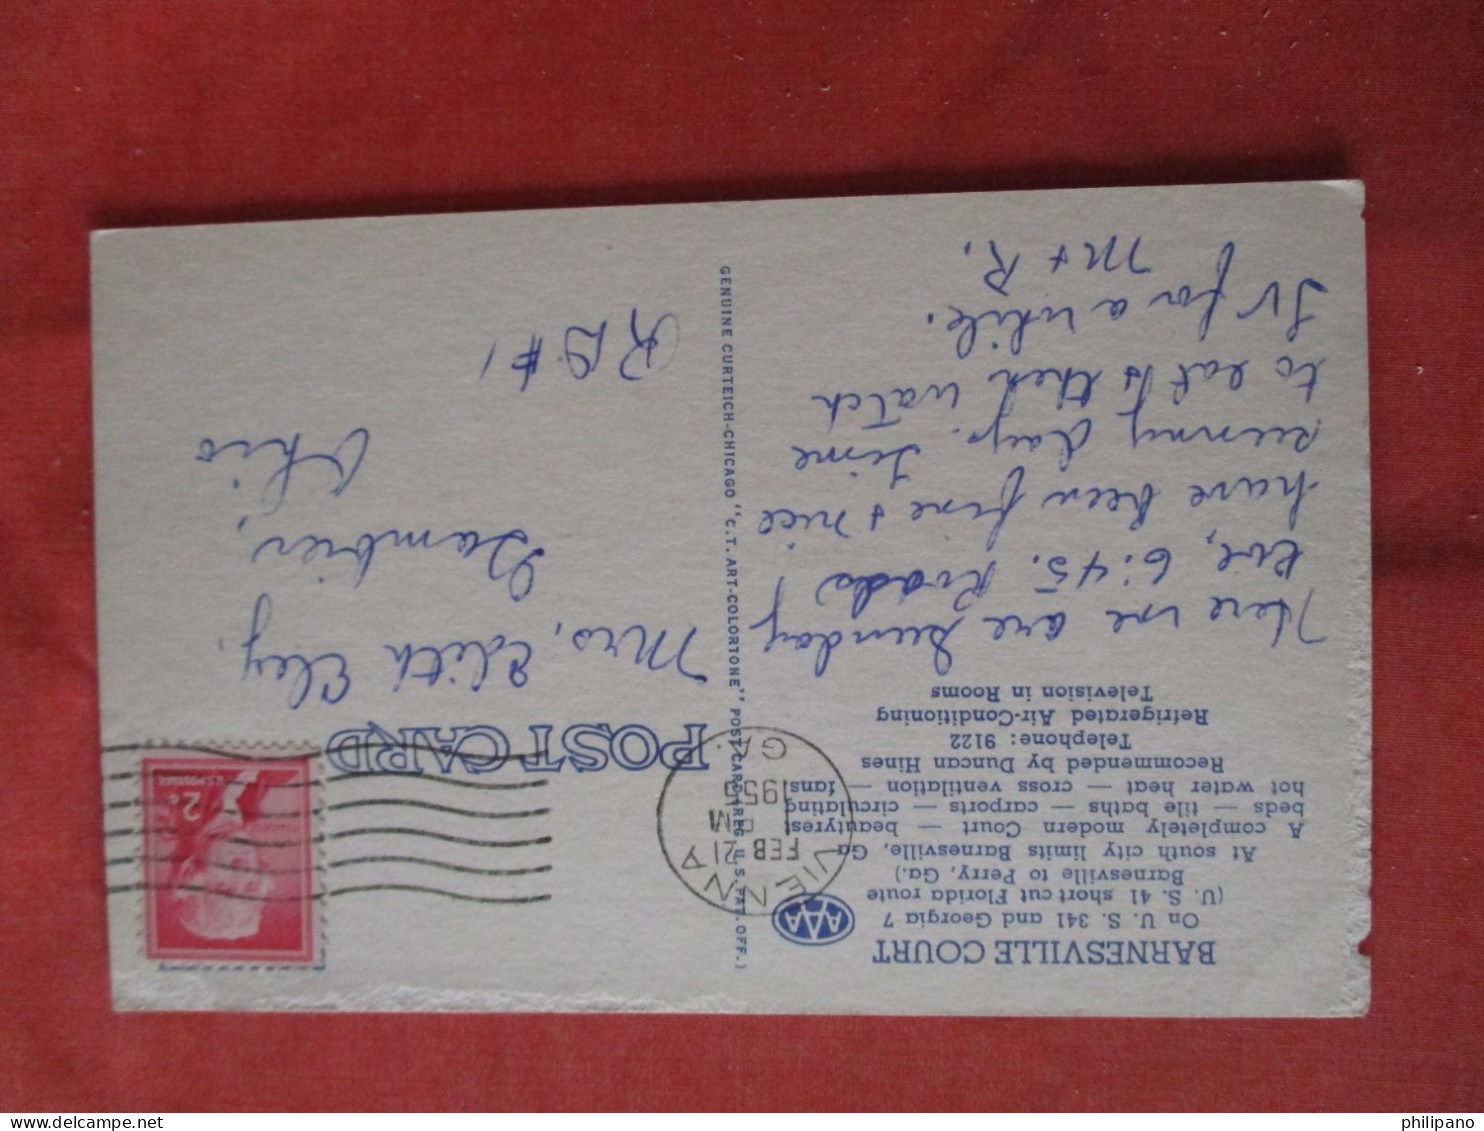 BARNESVILLE COURT
On U. S. 341 and Georgia 7
(U. S. 41 short cut Florida route
Barnesville to Perry, Ga.)
At south city limits Barnesville, Ga.
A completely modern Court — beautyrest
beds — tile baths — carports — circulating
hot water heat — cross ventilation — fans.
Recommended by Duncan Hines
Telephone: 9122
Refrigerated Air-Conditioning
Television in Rooms
AAA
Here we are Sunday
6:45. Roads
have been fine & nice
sunny day. Time
to eat & then watch
TV for a while.
M + R.
GENUINE CURTEICH-CHICAGO "C.T. ART-COLORTONE" POST CARD (REG. U. S. PAT. OFF.)
VIENNA
FEB 21
PM
195
GA.
POST CARD
U.S. POSTAGE
2¢
Mrs. Edith Eley.
Gambier,
Ohio
RD #1
philipano